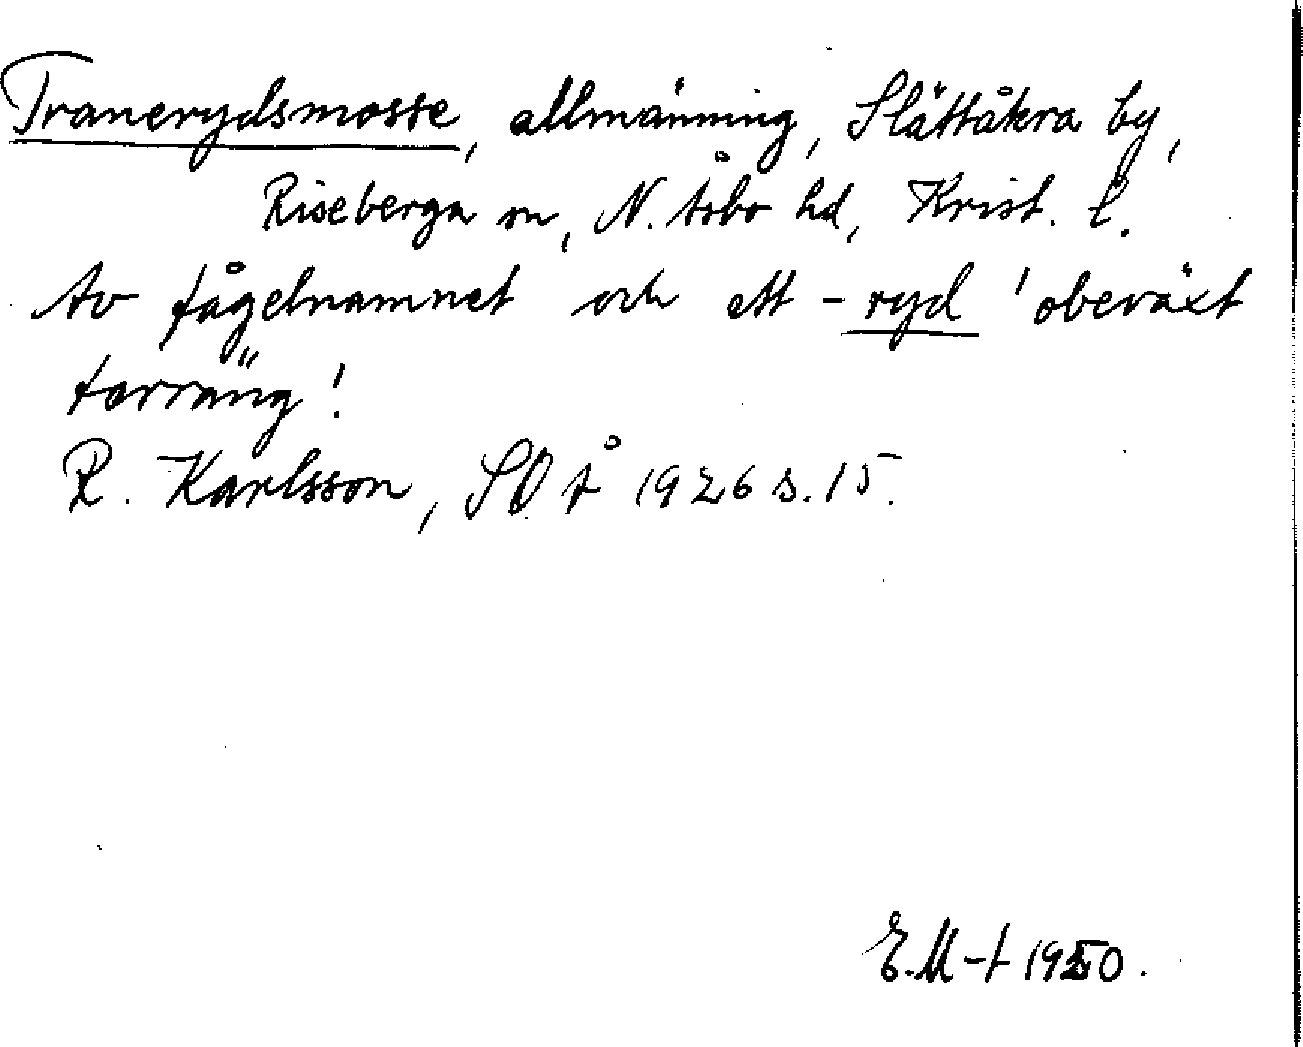 Tranerydsmosse, allmänning, Slättåkra by,
Riseberga sn, N. Åsbo hd, Krist. l.
Av fågelnamnet och ett -ryd 'obeväxt
torräng'.
R. Karlsson, SOÅ 1926 s. 15.
E.M-t 1950.